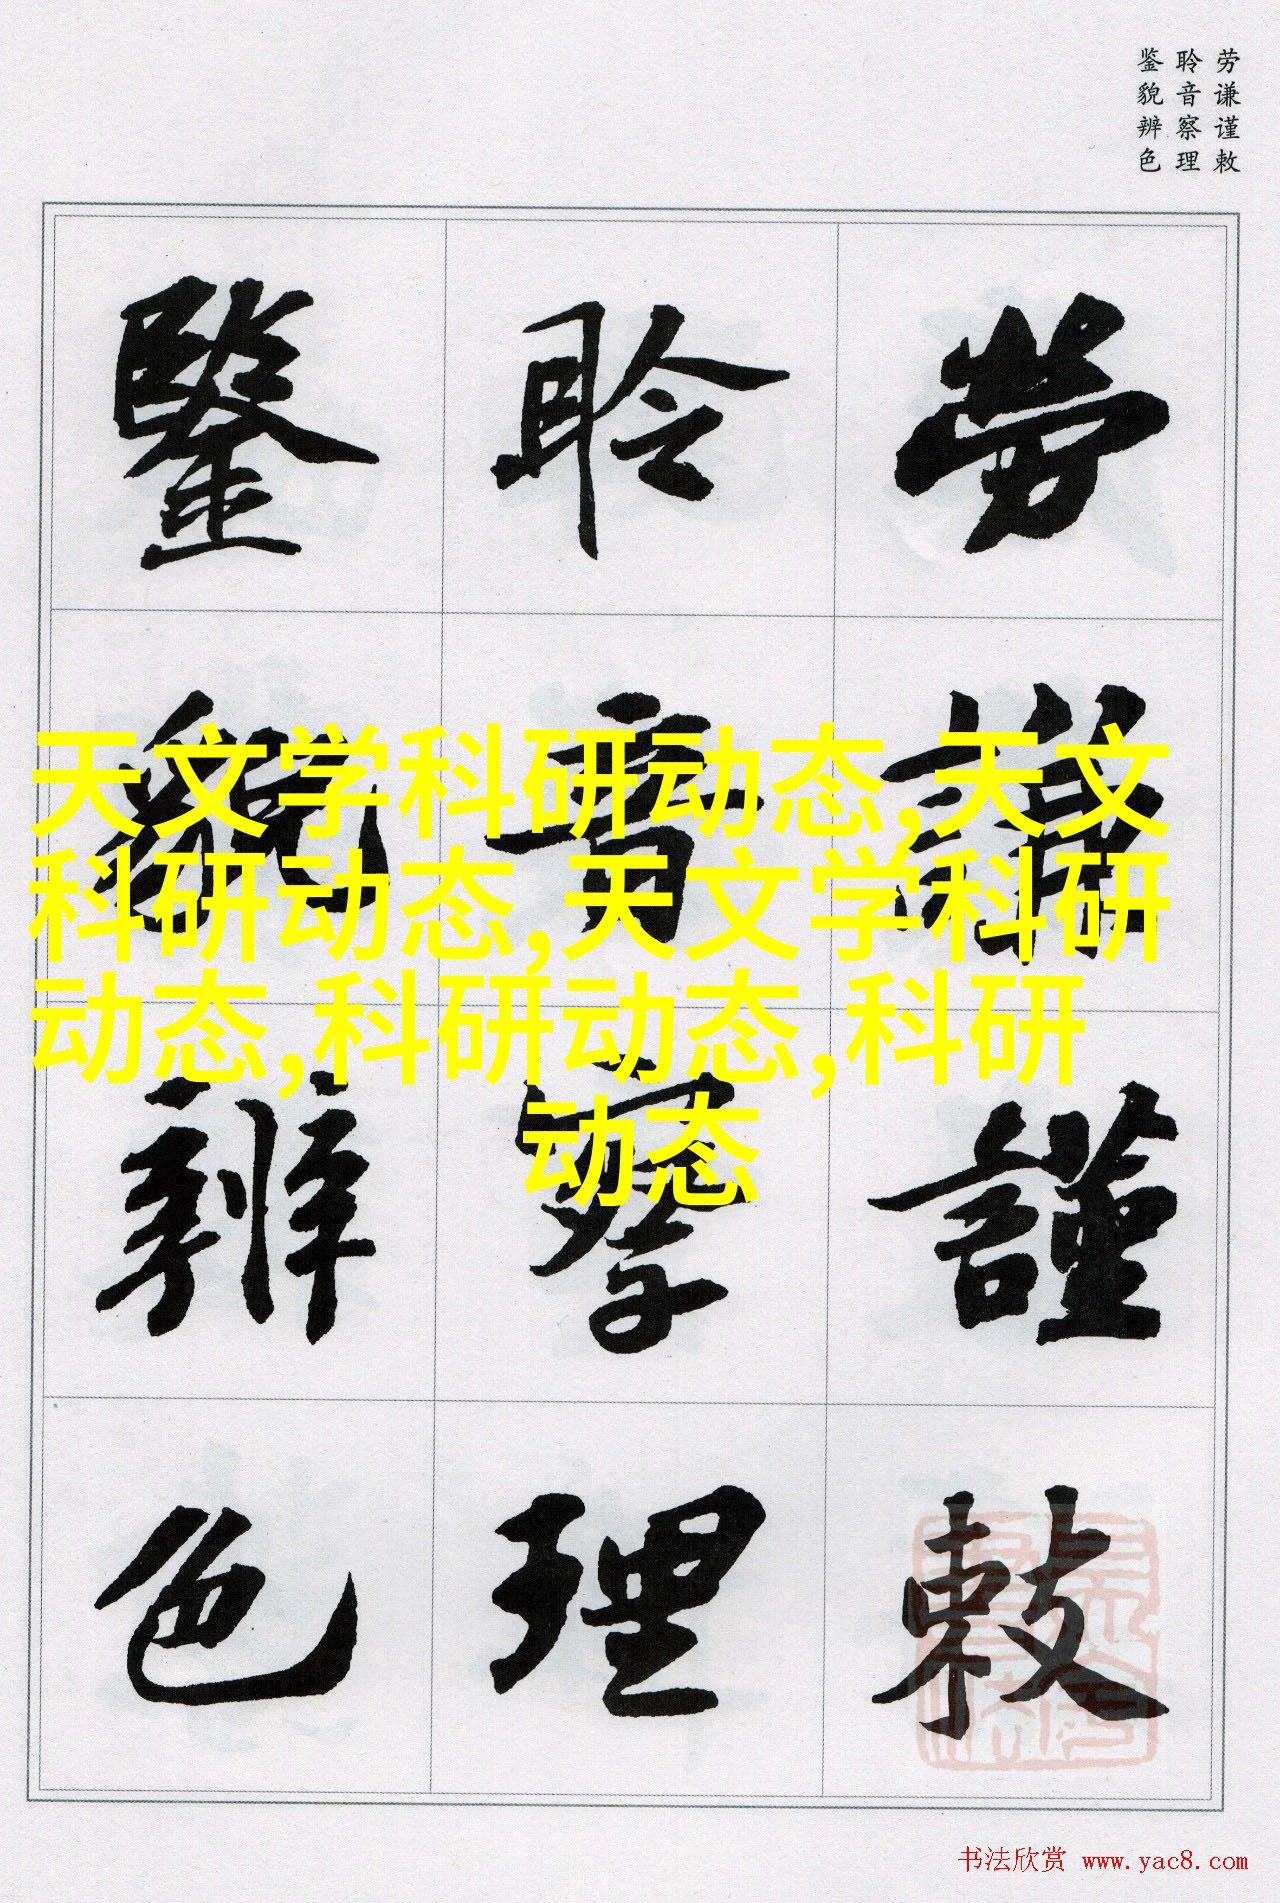 劳谦谨敕
聆音察理
鉴貌辨色
勞謙謹敕
聆音察理
鑒貌辨色
天文学科研动态,天文
科研动态,天文学科研
动态,科研动态,科研
动态
书法欣赏 www.yac8.com